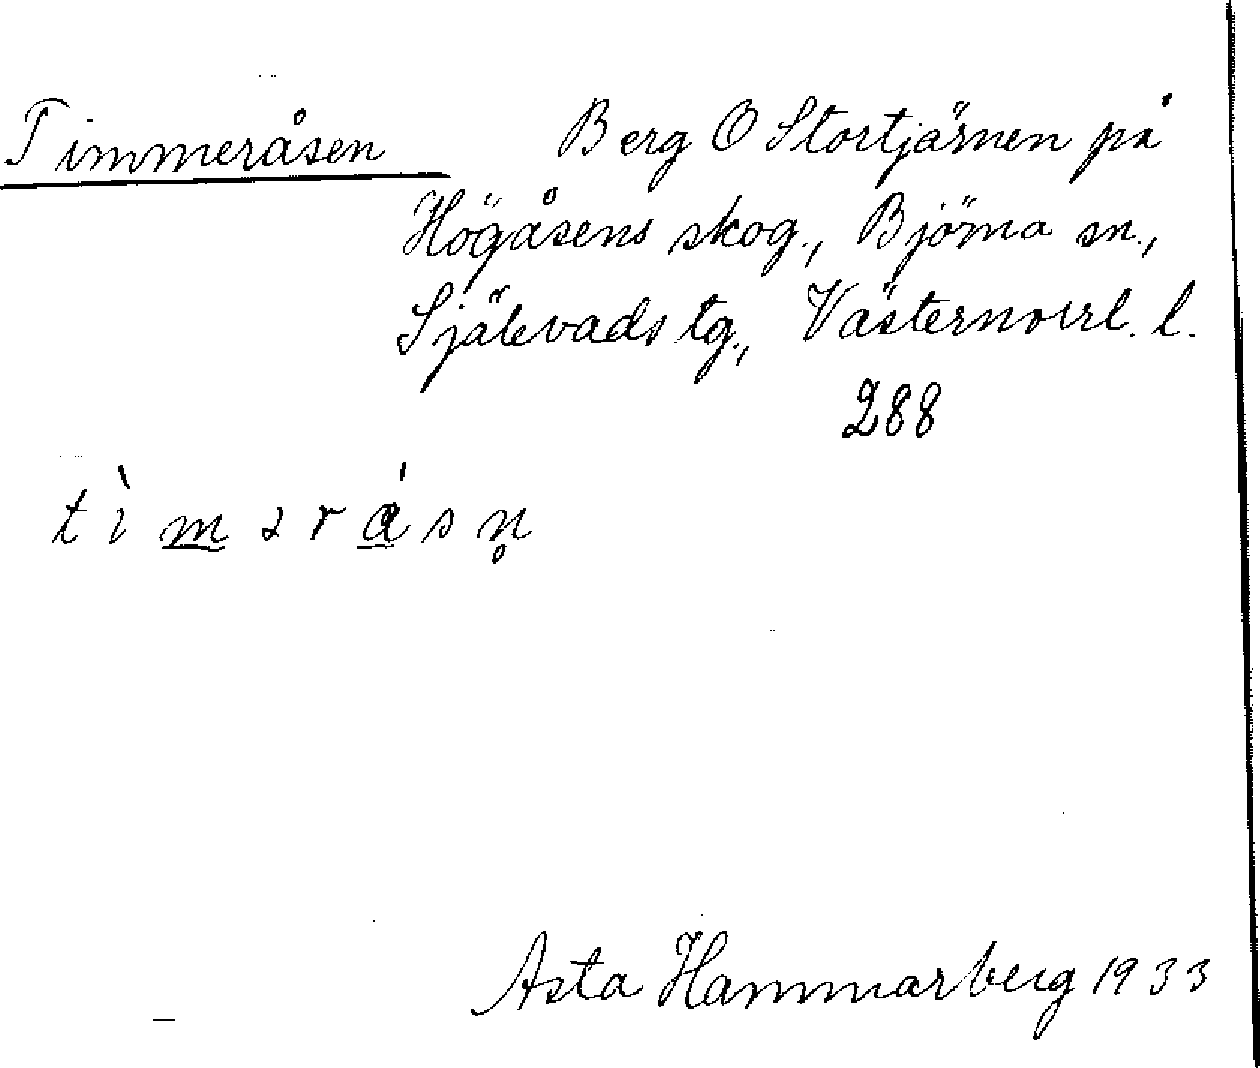 Timmeråsen Berg O Stortjärnen på
Högåsens skog., Björna sn.,
Själevads tg., Västernorrl. l.
288
t ì m ə r ǻ s n̥
Asta Hammarberg 1933